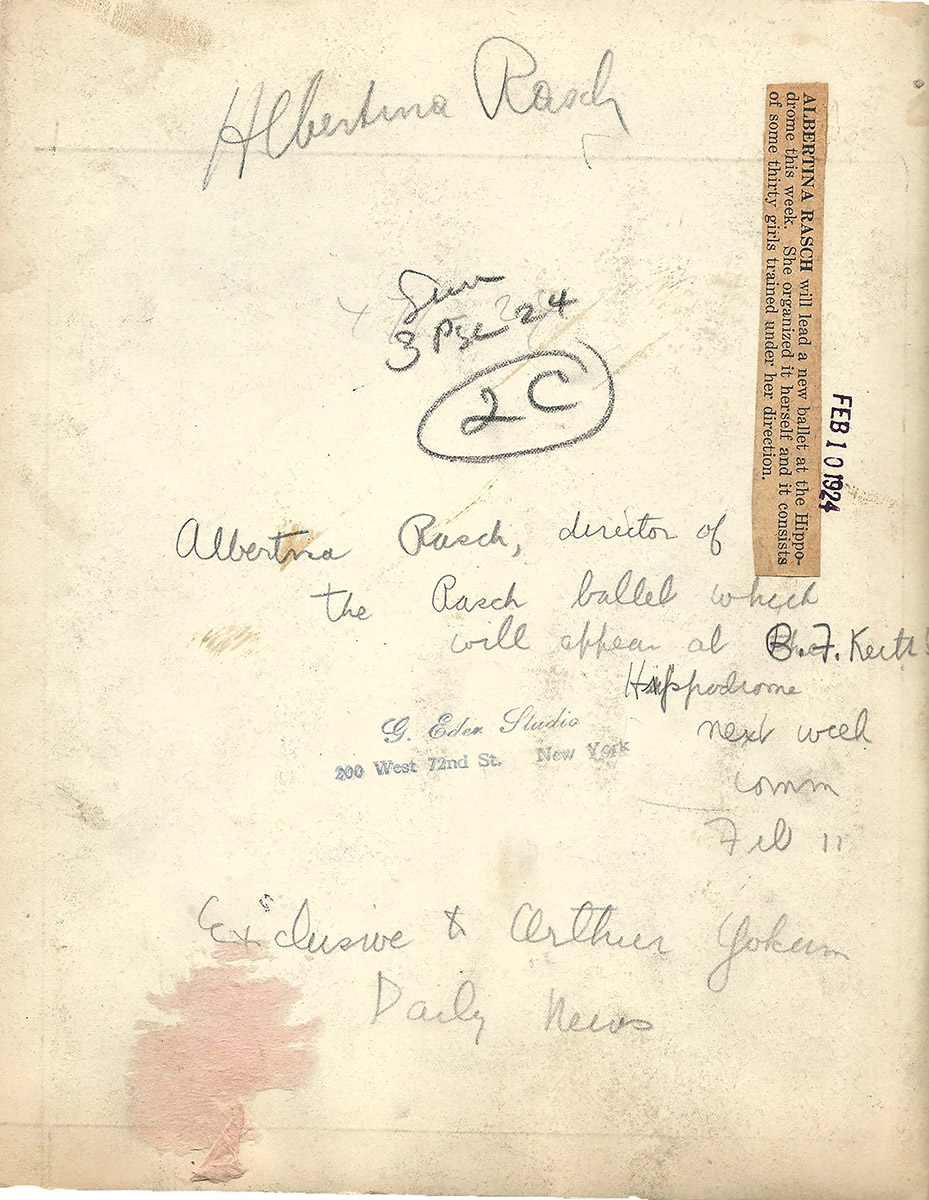 Albertina Rasch
Sun
24
2C
ALBERTINA RASCH will lead a new ballet at the Hippo-
drome this week. She organized it herself and it consists
of some thirty girls trained under her direction.
FEB 10 1924
Albertina Rasch, director of
the Rasch ballet which
will appear at B. F. Keith's
Hippodrome
next week
comm
Feb 11
G. Eden Studio
200 West 72nd St. New York
Exclusive to Arthur Yokum
Daily News